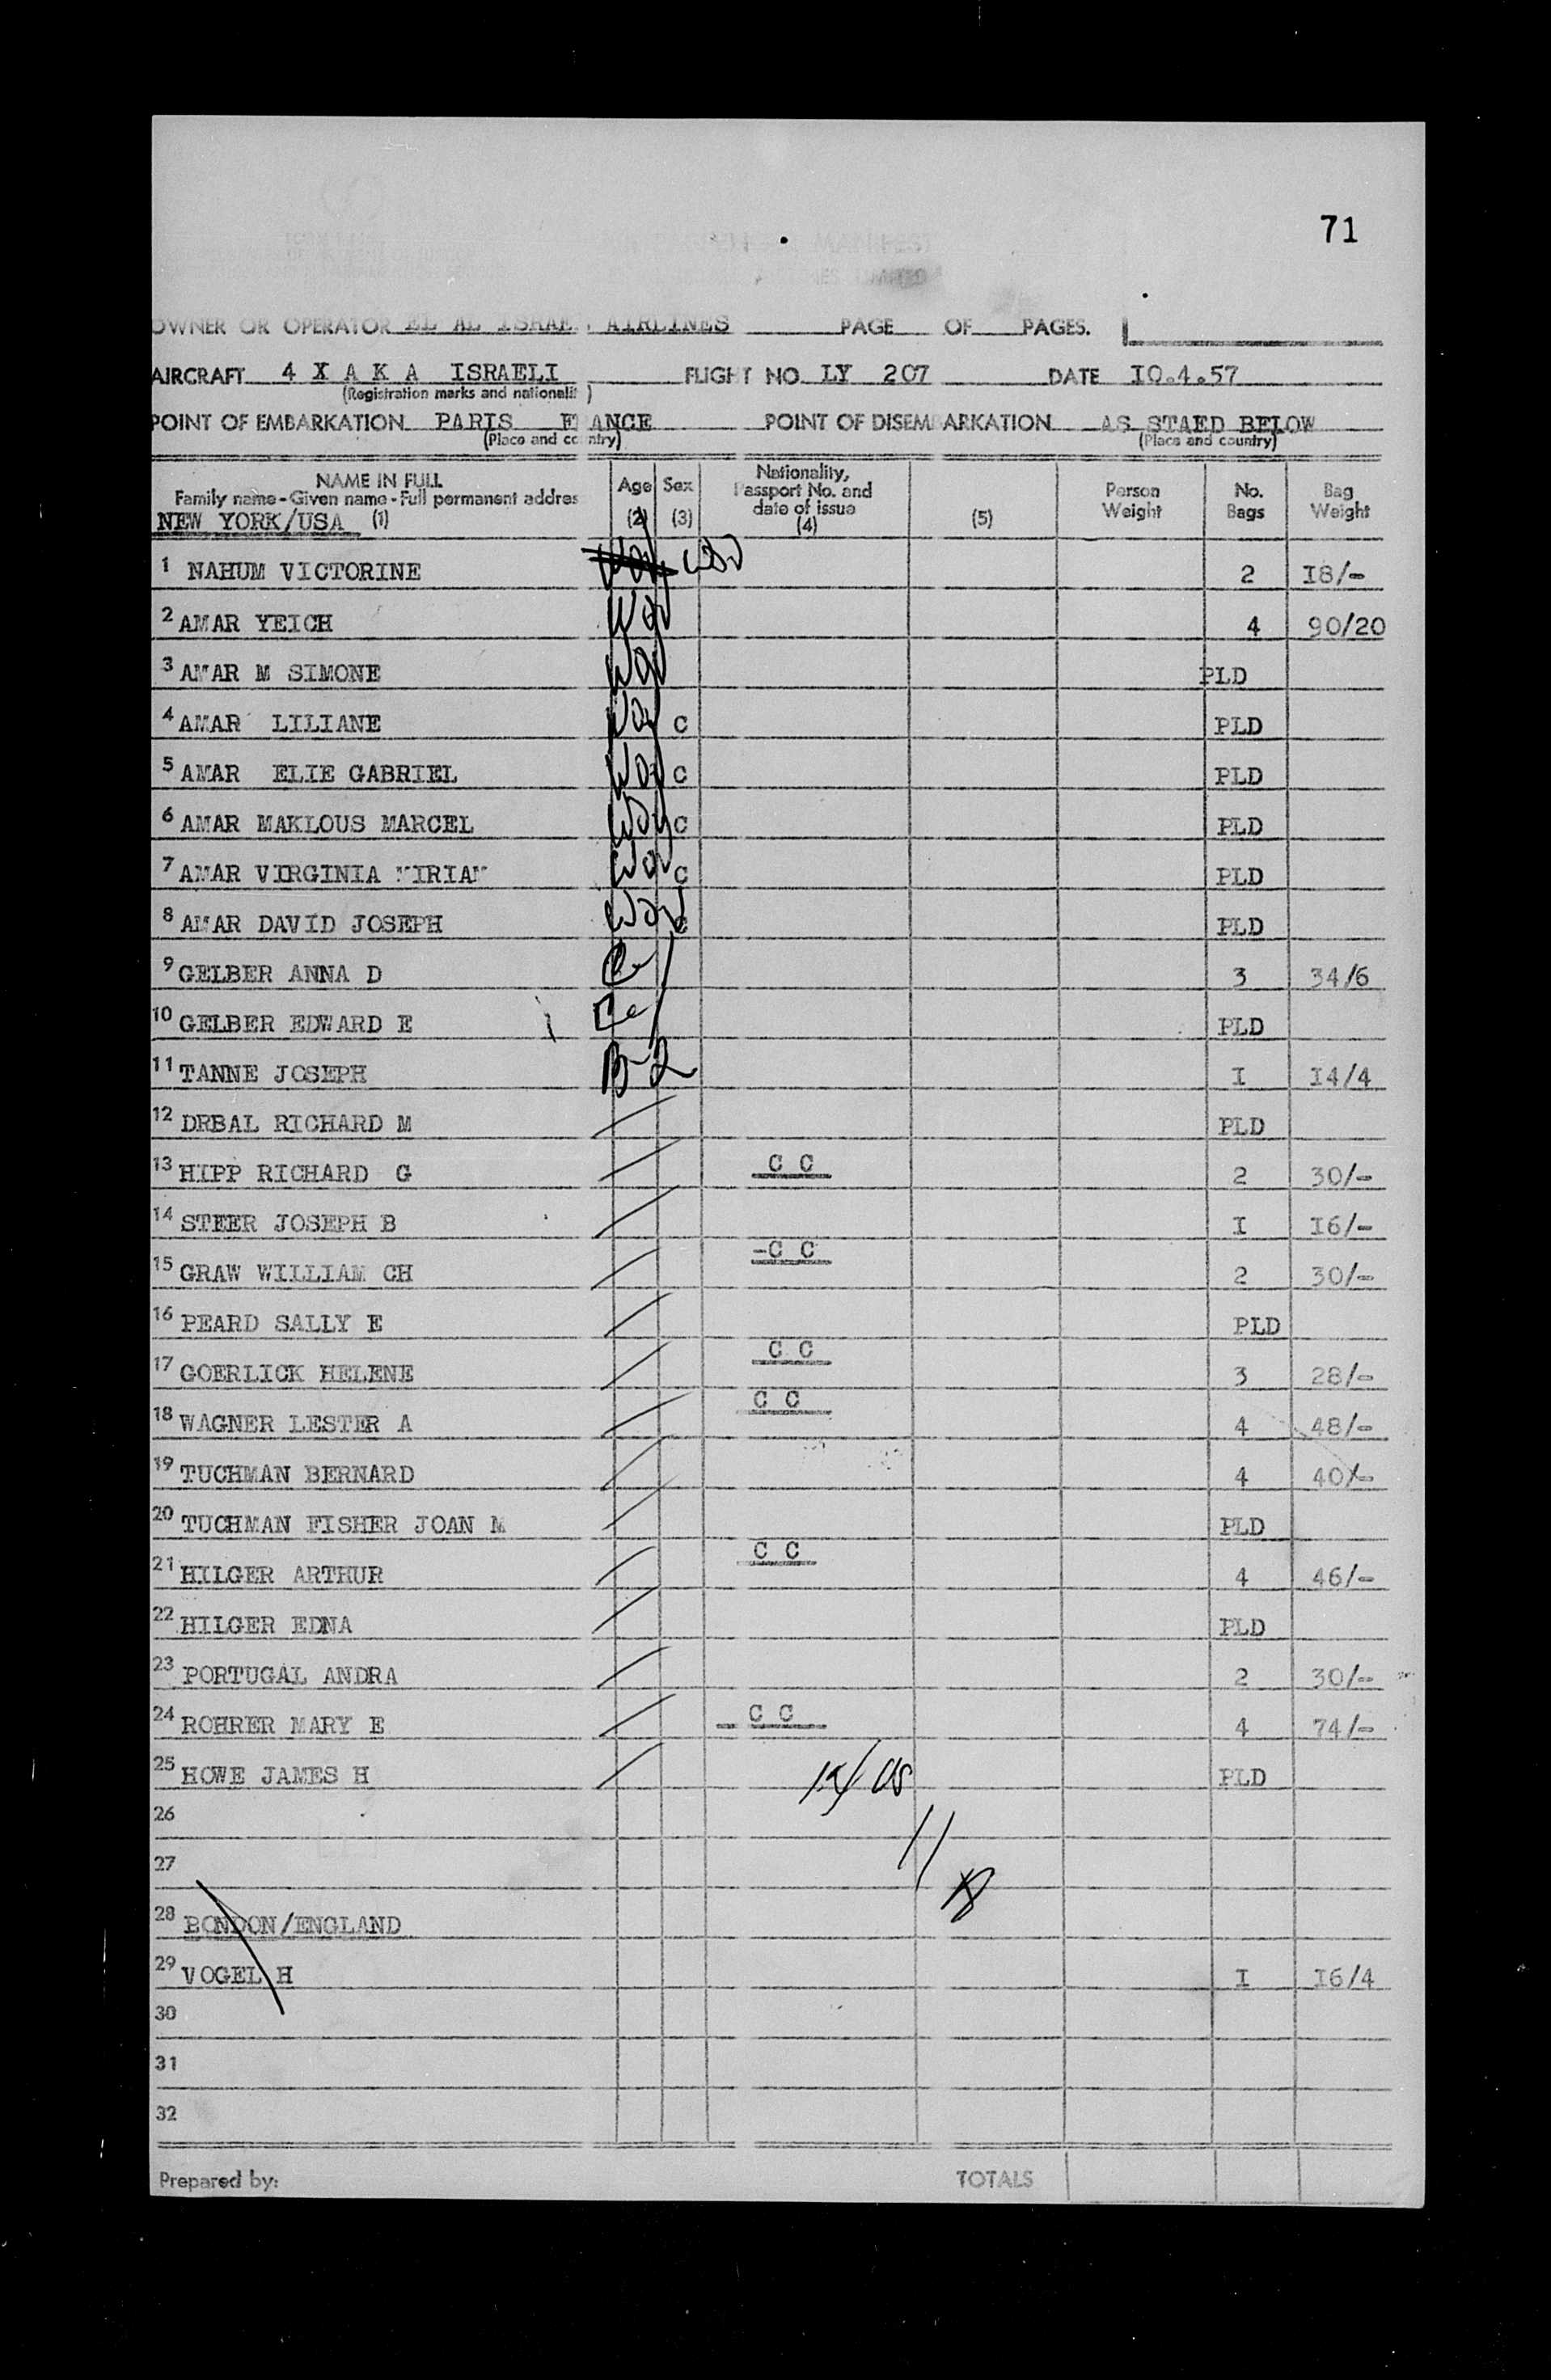 71
OWNER OR OPERATOR EL AL ISRAEL AIRLINES PAGE OF PAGES.
AIRCRAFT 4 X A K A ISRAELI FLIGHT NO. LY 207 DATE IO.4.57
(Registration marks and nationalit )
POINT OF EMBARKATION PARIS F ANCE POINT OF DISEMBARKATION AS STAED BELOW
(Place and country) (Place and country)
NAME IN FULL Age Sex Nationality, Person No. Bag
Family name - Given name - Full permanent addres Passport No. and Weight Bags Weight
NEW YORK/USA (1) (2) (3) date of issue (5)
(4)
1 NAHUM VICTORINE 2 I8/-
2 AMAR YEICH 4 90/20
3 AMAR M SIMONE PLD
4 AMAR LILIANE C PLD
5 AMAR ELIE GABRIEL C PLD
6 AMAR MAKLOUS MARCEL C PLD
7 AMAR VIRGINIA MIRIAM C PLD
8 AMAR DAVID JOSEPH C PLD
9 GELBER ANNA D 3 34/6
10 GELBER EDWARD E PLD
11 TANNE JOSEPH B-2 I I4/4
12 DRBAL RICHARD M PLD
13 HIPP RICHARD G C C 2 30/-
14 STEER JOSEPH B I I6/-
15 GRAW WILLIAM CH -C C 2 30/-
16 PEARD SALLY E PLD
17 GOERLICK HELENE C C 3 28/-
18 WAGNER LESTER A C C 4 48/-
19 TUCHMAN BERNARD 4 40/-
20 TUCHMAN FISHER JOAN M PLD
21 HILGER ARTHUR C C 4 46/-
22 HILGER EDNA PLD
23 PORTUGAL ANDRA 2 30/-
24 ROHRER MARY E C C 4 74/-
25 HOWE JAMES H PLD
26
27
28 BONDON/ENGLAND
29 VOGEL H I I6/4
30
31
32
Prepared by: TOTALS